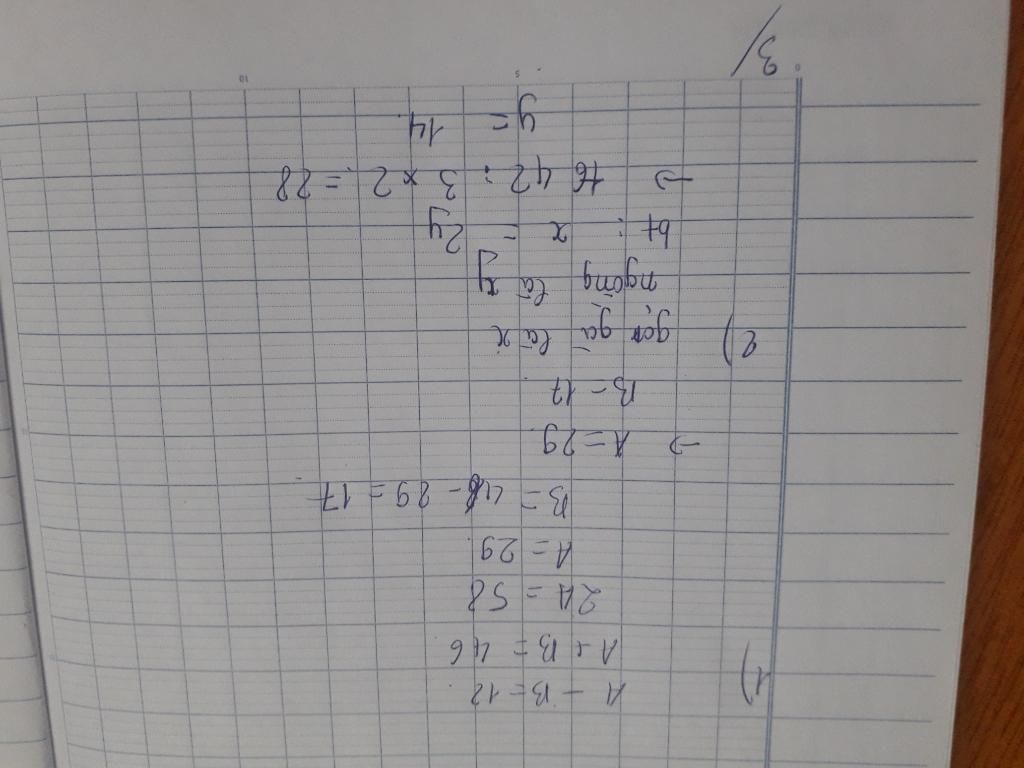 1) A - B = 12
A + B = 46
2A = 58
A = 29
B = 46 - 29 = 17
→ A = 29
B = 17
2) gọi gà là x
ngỗng là y
bt : x = 2y
→ 42 : 3 x 2 = 28
y = 14
3/